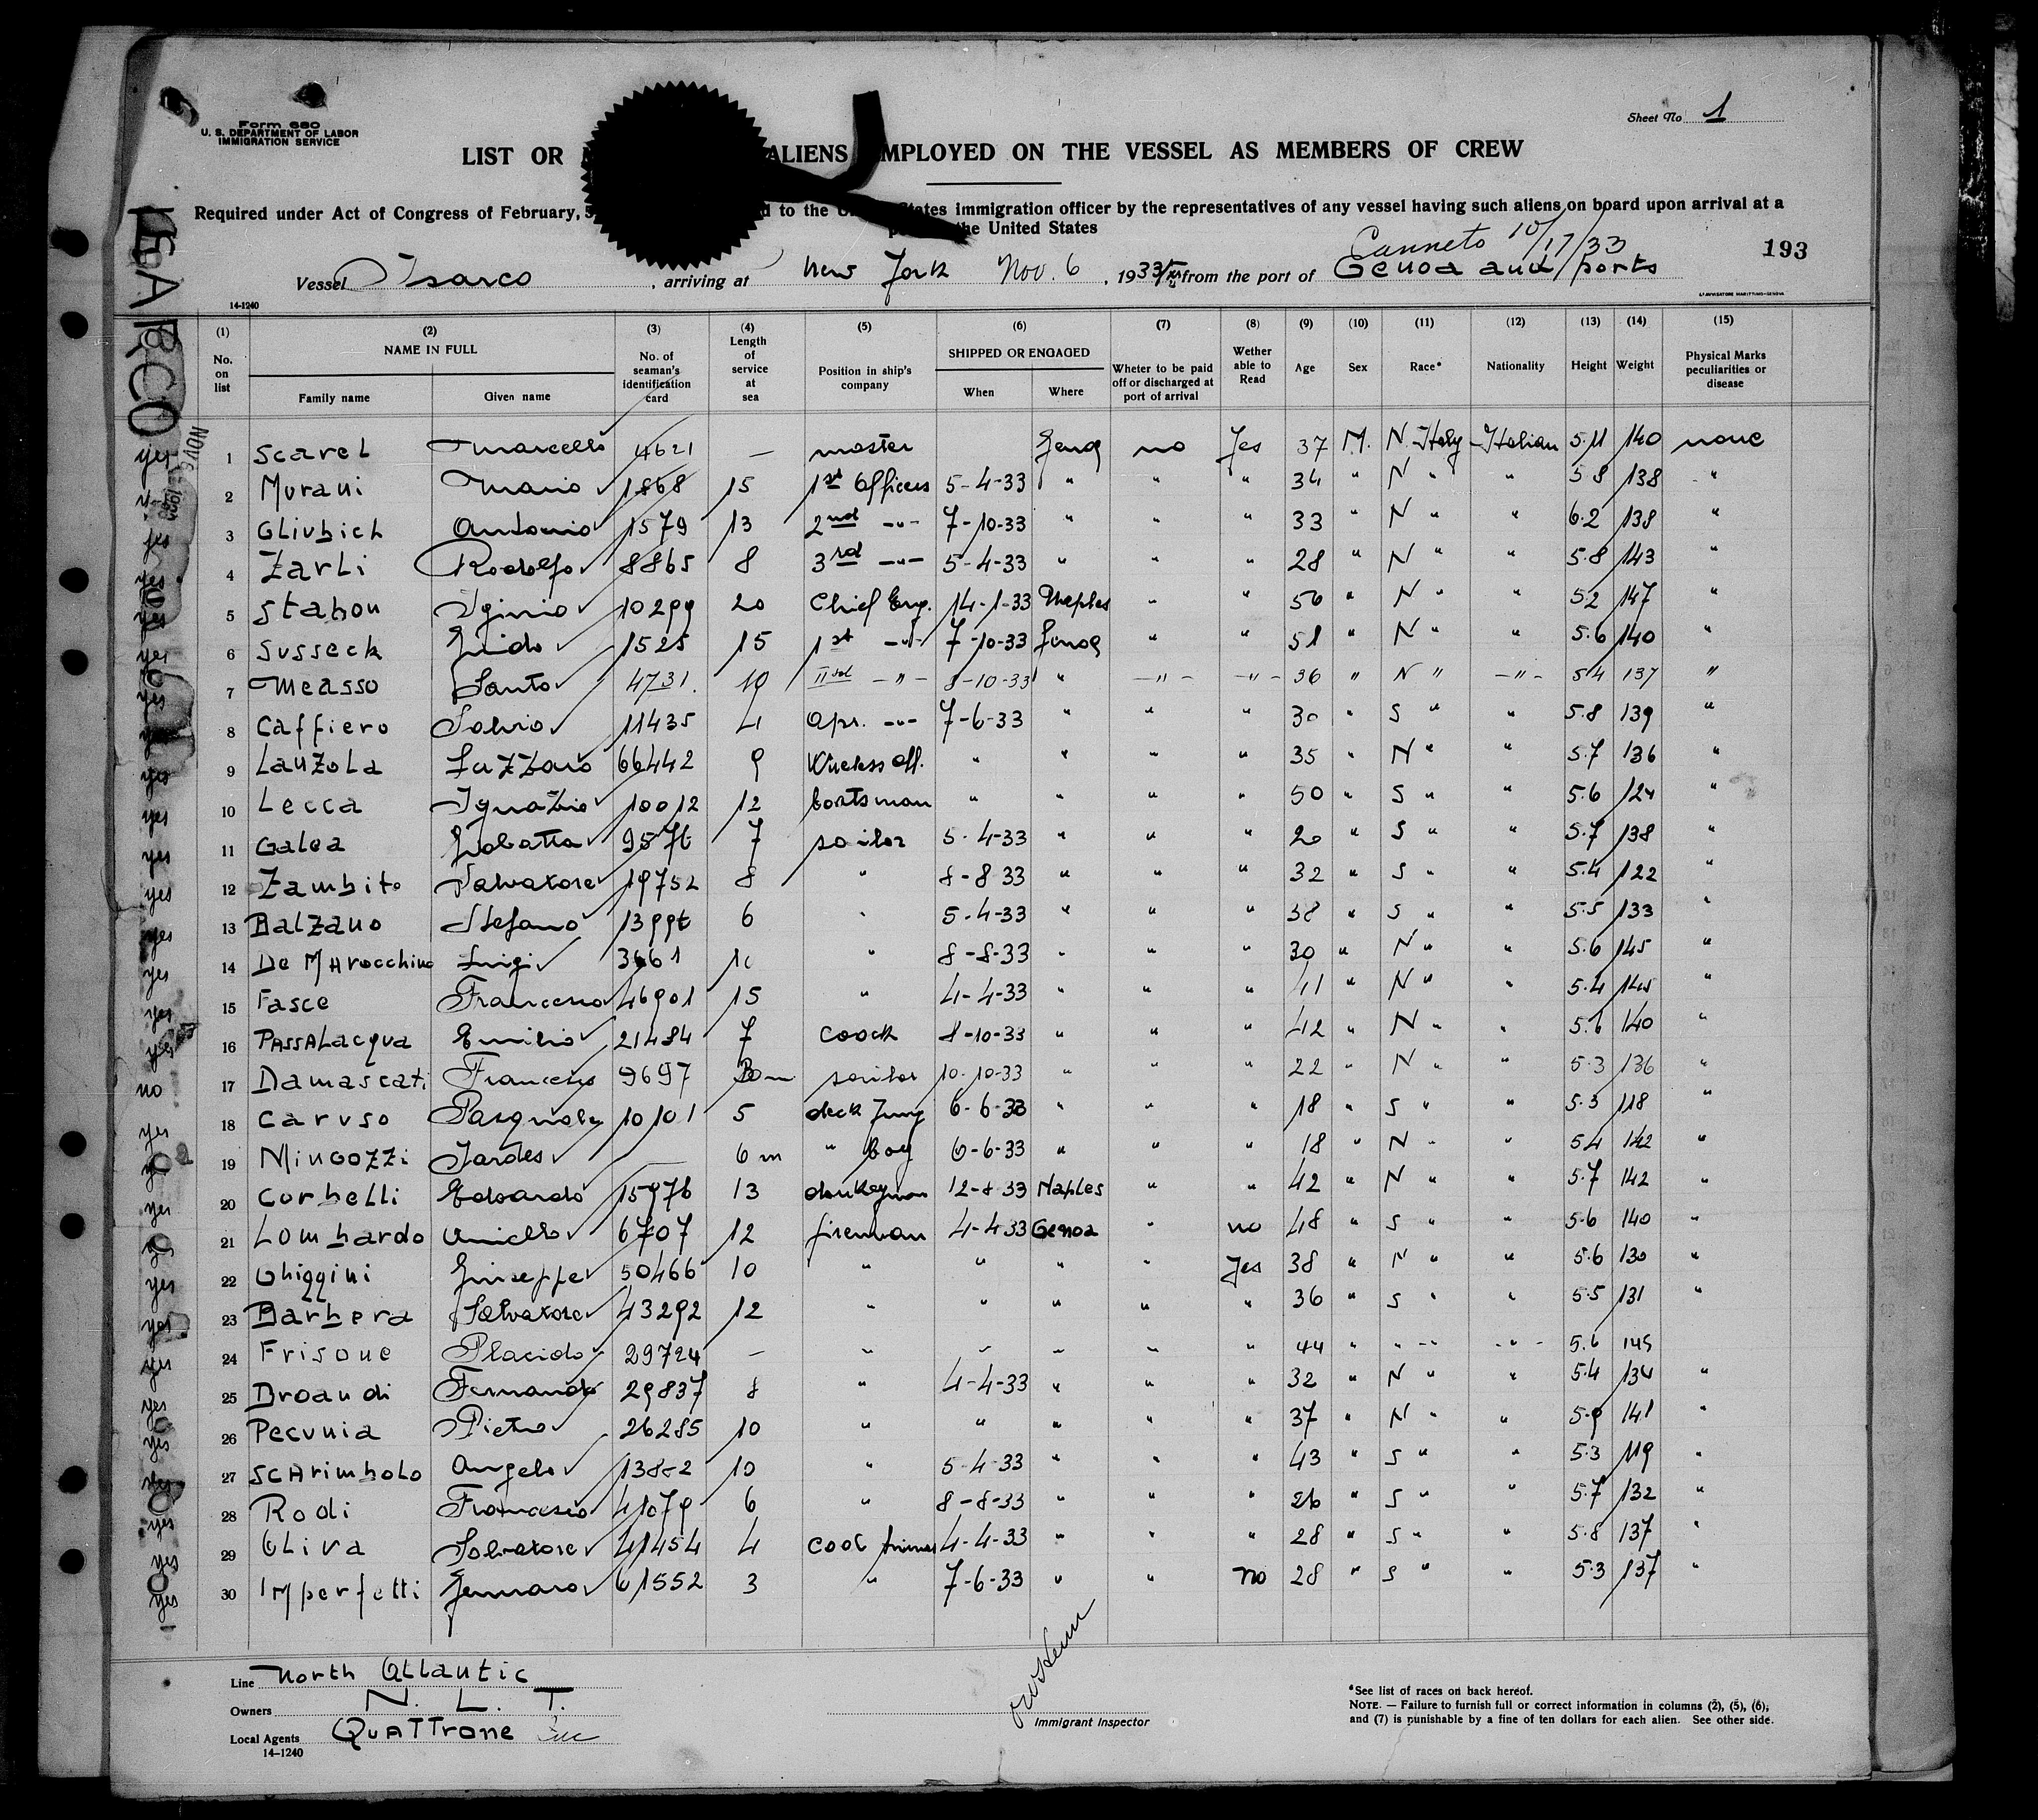 Form 680
U. S. DEPARTMENT OF LABOR
IMMIGRATION SERVICE
Sheet No 1
LIST OR ALIENS EMPLOYED ON THE VESSEL AS MEMBERS OF CREW
Required under Act of Congress of February, to the United States immigration officer by the representatives of any vessel having such aliens on board upon arrival at a
the United States
Canneto 10/17/33
193
Vessel Isarco, arriving at New York Nov. 6, 1933 from the port of Genoa and ports
14-1240
ISARCO
(1) (2) (3) (4) (5) (6) (7) (8) (9) (10) (11) (12) (13) (14) (15)
No. on list NAME IN FULL Family name Given name No. of seaman's identification card Length of service at sea Position in ship's company SHIPPED OR ENGAGED When Where Wheter to be paid off or discharged at port of arrival Wether able to Read Age Sex Race* Nationality Height Weight Physical Marks peculiarities or disease
yes 1 Scarel Marcello 4621 — master Genoa no Yes 37 M. N Italy Italian 5.11 140 none
2 Morani Mario 1868 15 1st Officers 5-4-33 " " " 34 " N " " 5 8 138 "
yes 3 Glivbich Antonio 1579 13 2nd -"- 7-10-33 " " " 33 " N " " 6.2 138 "
yes 4 Zarli Rodolfo 8865 8 3rd -"- 5-4-33 " " " 28 " N " " 5.8 143 "
yes 5 Stabon Iginio 10299 20 Chief Eng. 14-1-33 Naples " " 50 " N " " 5.2 147 "
yes 6 Susseck Guido 1525 15 1st -"- 7-10-33 Genoa " " 51 " N " " 5.6 140 "
yes 7 Measso Santo 4731. 10 II nd -"- 8-10-33 " -"- -"- 36 " N " -"- 5.4 137 "
8 Caffiero Salvio 11435 4 Apr. -"- 7-6-33 " " " 30 " S " " 5.8 139 "
yes 9 Lanzola Lazzaro 66442 9 Wireless off. " " " " 35 " N " " 5.7 136 "
yes 10 Lecca Ignazio 10012 12 boatsman " " " " 50 " S " " 5.6 124 "
yes 11 Galea Giobatta 9576 7 sailor 5-4-33 " " " 20 " S " " 5.7 138 "
yes 12 Zambito Salvatore 19752 8 " 8-8-33 " " " 32 " S " " 5.4 122 "
yes 13 Balzano Stefano 13996 6 " 5-4-33 " " " 38 " S " " 5.5 133 "
yes 14 De Marocchino Luigi 3661 " 8-8-33 " " " 30 " N " " 5.6 145 "
yes 15 Fasce Francesco 46901 15 " 4-4-33 " " " 41 " N " " 5.4 145 "
yes 16 Passalacqua Emilio 21484 7 coock 8-10-33 " " " 42 " N " " 5.6 140 "
no 17 Damascati Francesco 9697 sailor 10-10-33 " " " 22 " N " " 5.3 136 "
yes 18 Caruso Pasquale 10101 5 deck Jung 6-6-33 " " " 18 " S " " 5.3 118 "
yes 19 Mingozzi Jardes — 6 m " boy 6-6-33 " " " 18 " N " " 5.4 142 "
yes 20 Corbelli Edoardo 15976 13 donkeyman 12-8-33 Naples " " 42 " N " " 5.7 142 "
yes 21 Lombardo Aniello 6707 12 fireman 4-4-33 Genoa " no 48 " S " " 5.6 140 "
yes 22 Ghiggini Giuseppe 50466 10 " " " " Yes 38 " N " " 5.6 130 "
yes 23 Barbera Salvatore 43292 12 " " " " " 36 " S " " 5.5 131 "
yes 24 Frisone Placido 29724 — " " " " " 44 " " -- -"- 5.6 145
yes 25 Broandi Fernando 29837 8 " 4-4-33 " " " 32 " N " " 5.4 134 "
yes 26 Pecunia Pietro 26285 10 " " " " " 37 " N " " 5.9 141 "
yes 27 Scarimbolo Angelo 13802 10 " 5-4-33 " " " 43 " S " " 5.3 119 "
yes 28 Rodi Francesco 41079 6 " 8-8-33 " " " 26 " S " " 5.7 132 "
yes 29 Oliva Salvatore 41454 4 Cool trimer 4-4-33 " " " 28 " S " " 5.8 137 "
yes 30 Imperfetti Gennaro 61552 3 " 7-6-33 " " no 28 " S " " 5.3 137 "
Line North Atlantic
Owners N. L. T.
Local Agents Quattrone Inc
14-1240
Immigrant Inspector
*See list of races on back hereof.
NOTE. — Failure to furnish full or correct information in columns (2), (5), (6),
and (7) is punishable by a fine of ten dollars for each alien. See other side.